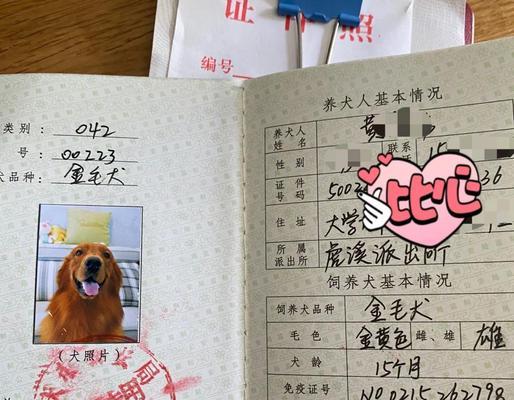 证 件 照
编号
类别: 042
号: 00223
犬品种: 金毛犬
(犬照片)
养犬人基本情况
养犬人姓名 黄
联系
15
性别
证件号码 500 36
比心
住址 大学
所属派出所 虎溪派出所
饲养犬基本情况
饲养犬品种 金毛犬
毛色 金黄色 雌、雄 雄
犬龄 15个月
免疫证号 No 0215262798